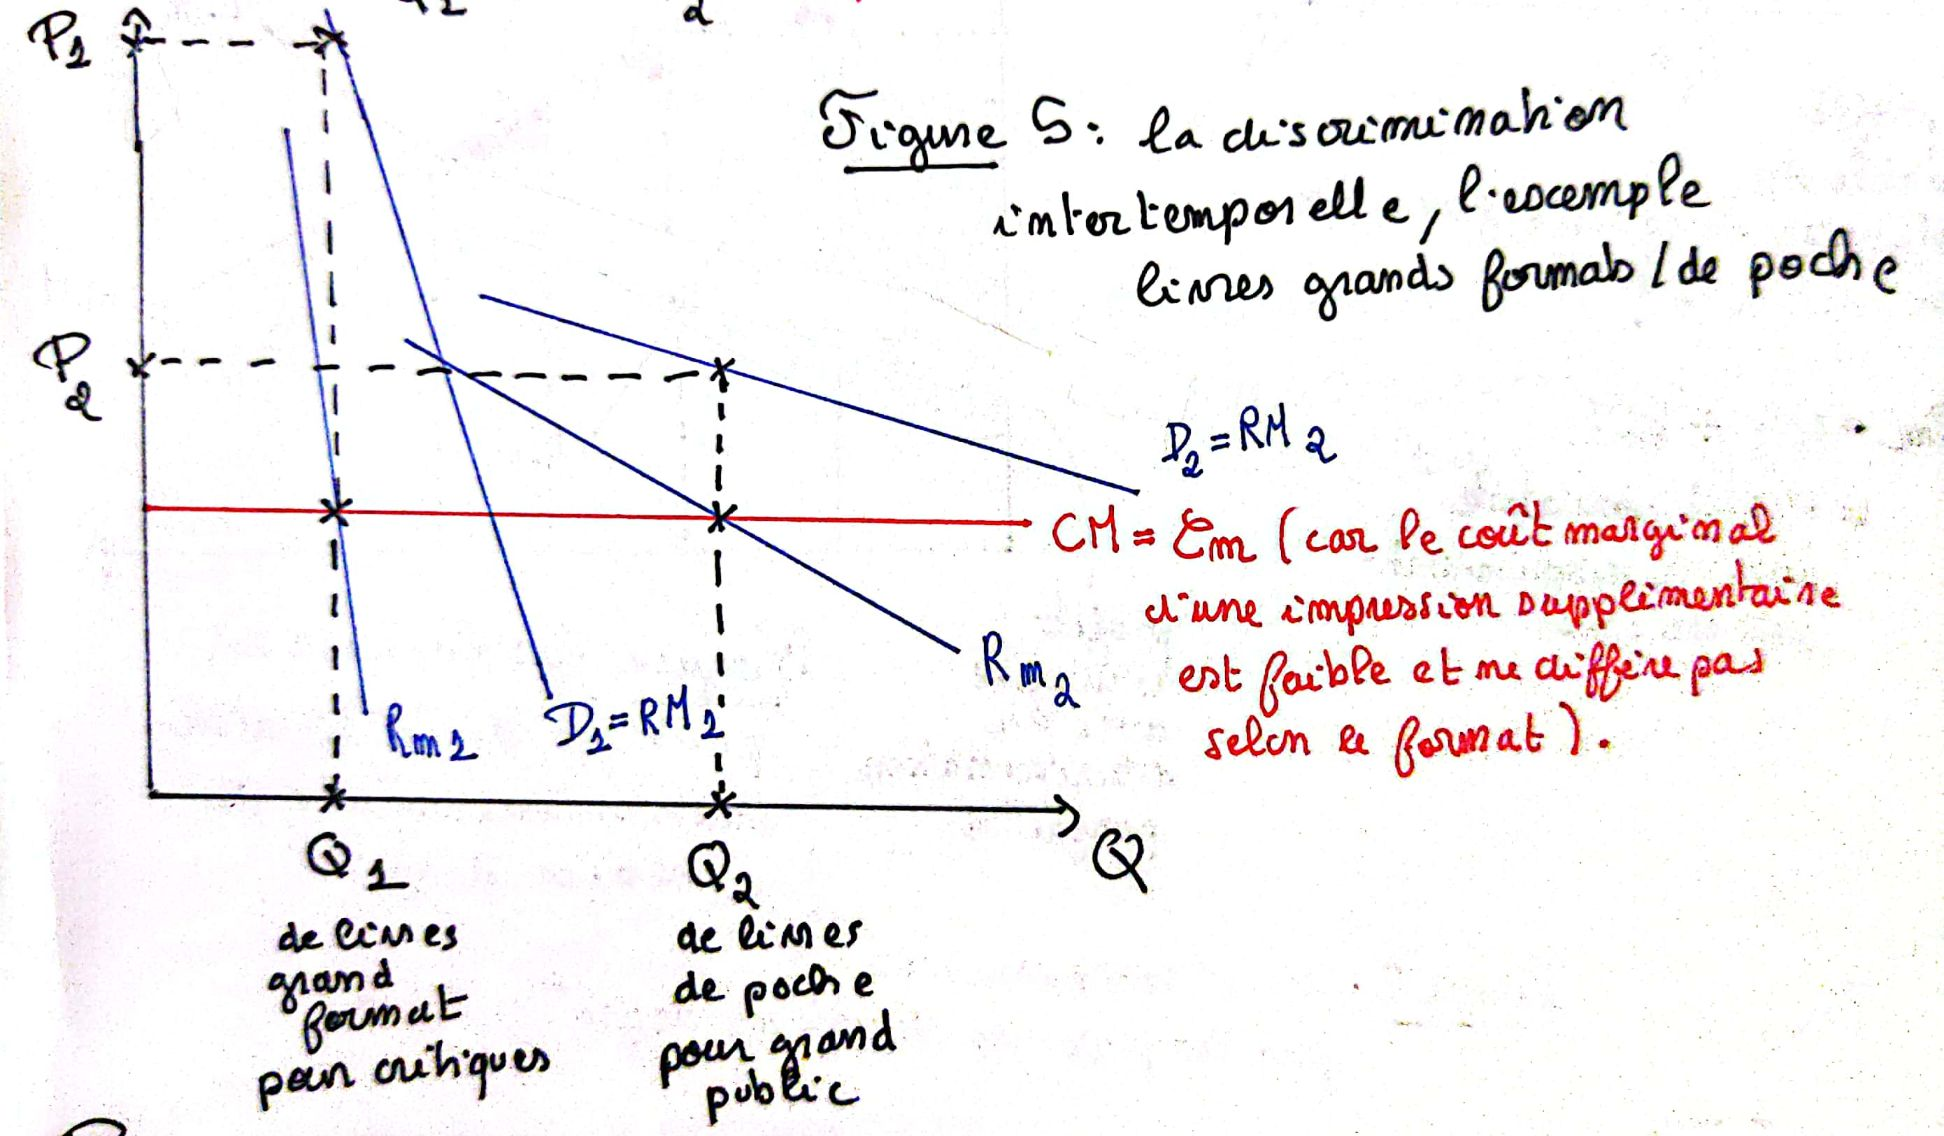 P1
Figure 5: la discrimination
intertemporelle, l'exemple
livres grands formats / de poche
P2
D2 = RM2
CM = Cm (car le coût marginal
d'une impression supplémentaire
est faible et ne diffère pas
selon le format).
Rm2
Rm1
D1 = RM1
Q1
Q2
Q
de livres
grand
format
pour critiques
de livres
de poche
pour grand
public